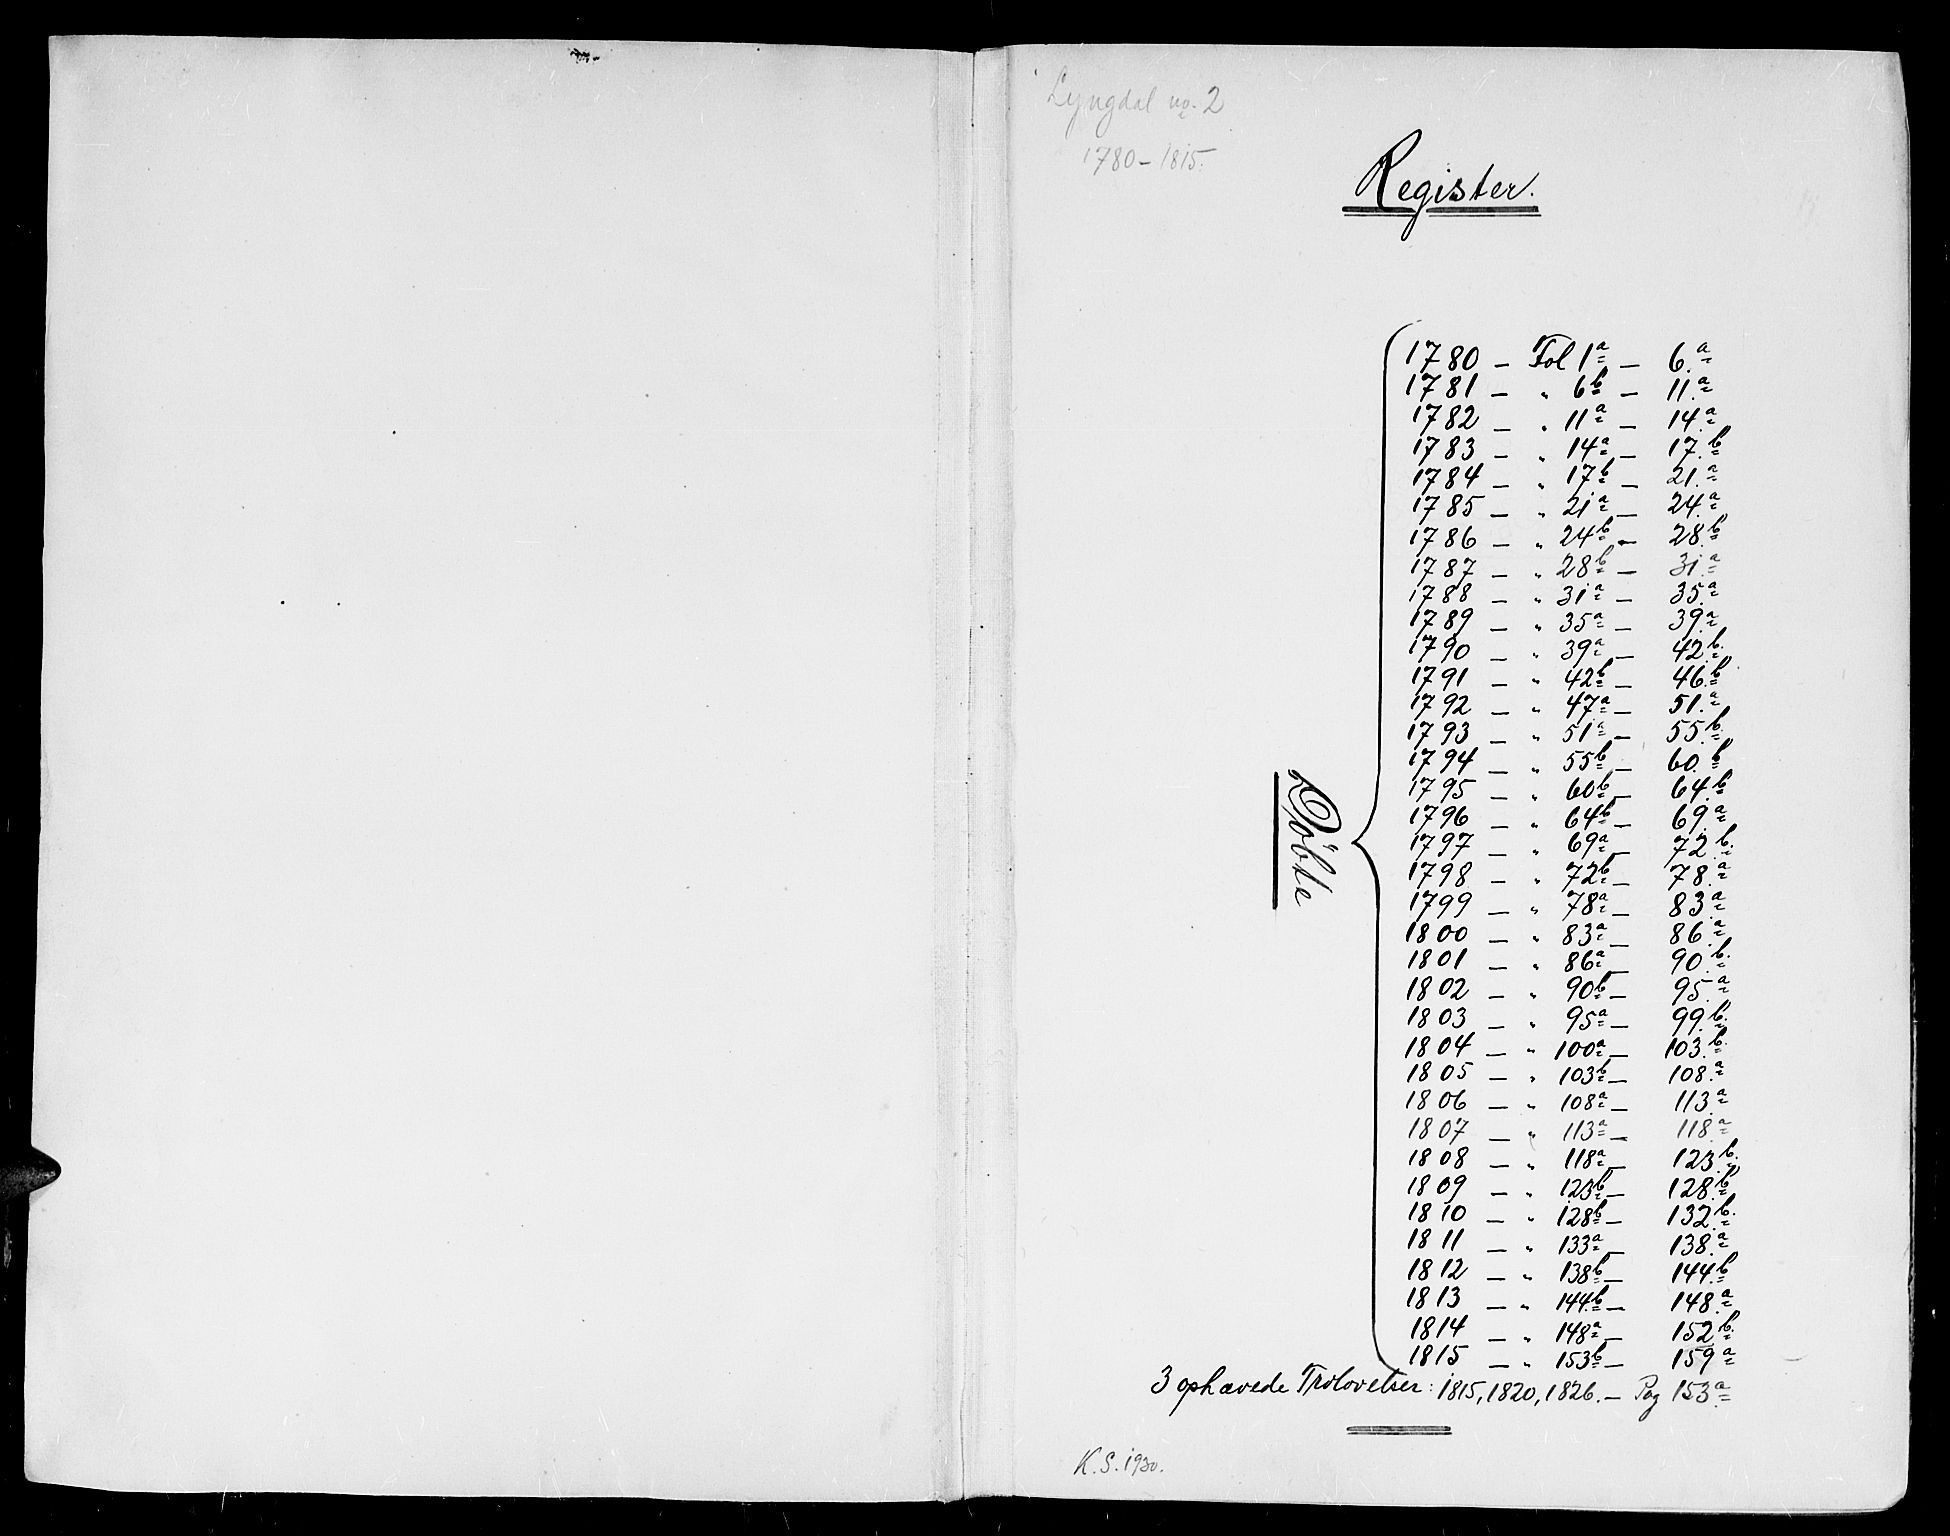 Lyngdal no. 2
1780 – 1815.
Register.
Døbte
1780 – Fol 1a – 6.a
1781 – " 6b – 11.a
1782 – " 11a – 14.a
1783 – " 14a – 17.b
1784 – " 17b – 21.a
1785 – " 21a – 24.a
1786 – " 24b – 28.b
1787 – " 28b – 31.a
1788 – " 31a – 35.a
1789 – " 35a – 39.a
1790 – " 39a – 42.b
1791 – " 42b – 46.b
1792 – " 47a – 51.a
1793 – " 51a – 55.b
1794 – " 55b – 60.b
1795 – " 60b – 64.b
1796 – " 64b – 69.a
1797 – " 69a – 72.b
1798 – " 72b – 78.a
1799 – " 78a – 83.a
1800 – " 83a – 86.a
1801 – " 86a – 90.b
1802 – " 90b – 95.a
1803 – " 95a – 99.b
1804 – " 100a – 103.b
1805 – " 103b – 108.a
1806 – " 108a – 113.a
1807 – " 113a – 118.a
1808 – " 118a – 123.b
1809 – " 123b – 128.b
1810 – " 128b – 132.b
1811 – " 133a – 138.a
1812 – " 138b – 144.b
1813 – " 144b – 148.a
1814 – " 148a – 152.b
1815 – " 153b – 159.a
3 ophævede Trolovelser: 1815, 1820, 1826. – Pag 153.a
K. S. 1930.